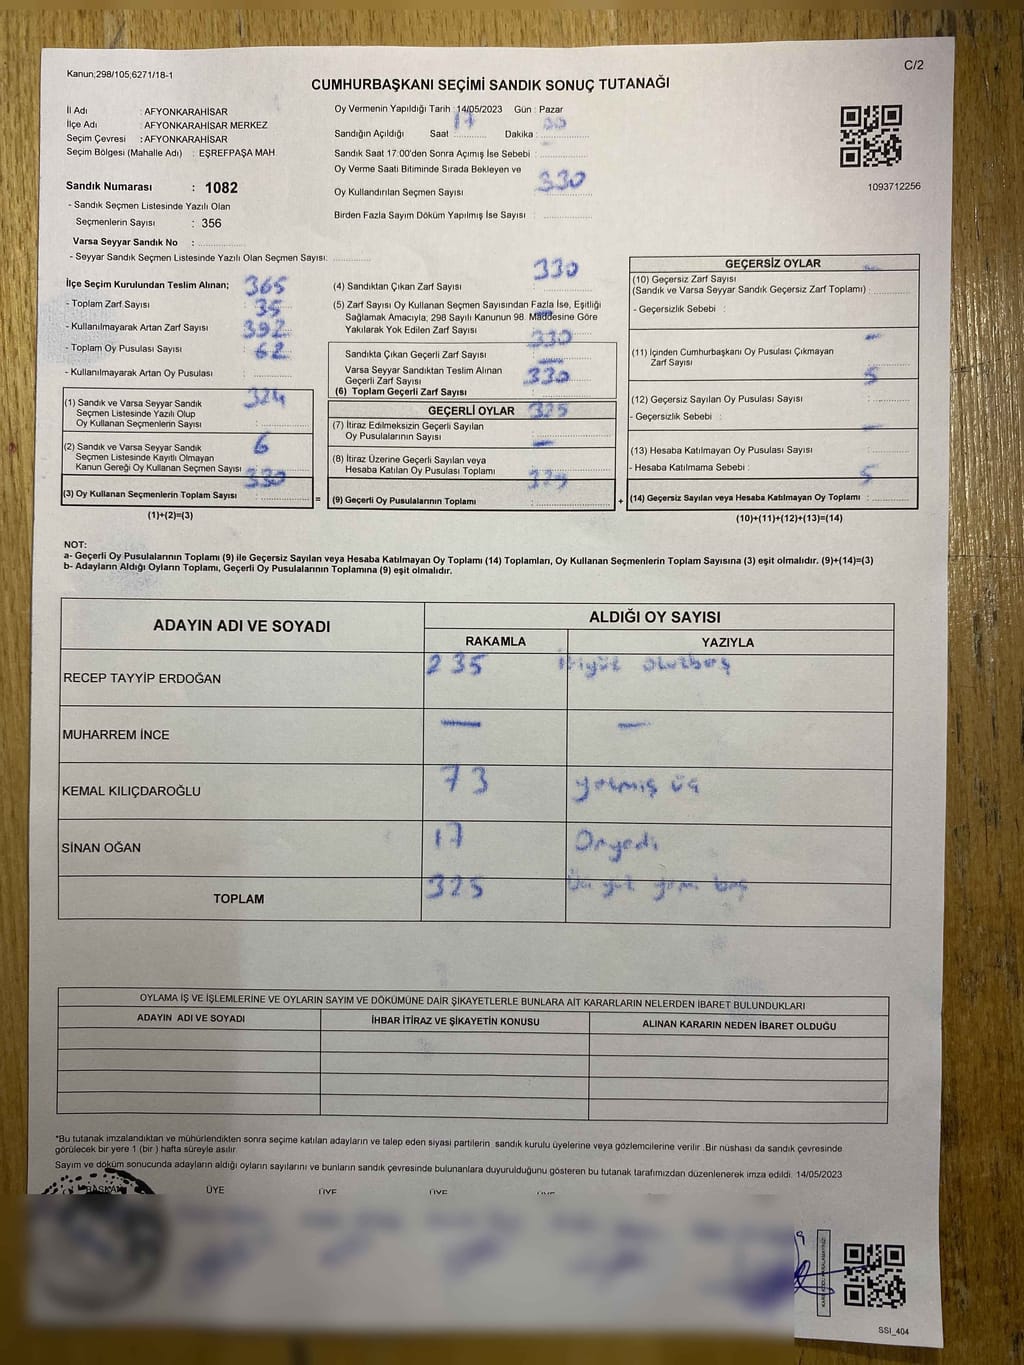 Kanun;298/105;6271/18-1
C/2
CUMHURBAŞKANI SEÇİMİ SANDIK SONUÇ TUTANAĞI
İl Adı : AFYONKARAHİSAR
İlçe Adı : AFYONKARAHİSAR MERKEZ
Seçim Çevresi : AFYONKARAHİSAR
Seçim Bölgesi (Mahalle Adı) : EŞREFPAŞA MAH.
Sandık Numarası : 1082
- Sandık Seçmen Listesinde Yazılı Olan
Seçmenlerin Sayısı : 356
Varsa Seyyar Sandık No :
- Seyyar Sandık Seçmen Listesinde Yazılı Olan Seçmen Sayısı:
Oy Vermenin Yapıldığı Tarih : 14/05/2023 Gün : Pazar
Sandığın Açıldığı Saat : 17 Dakika : 00
Sandık Saat 17:00'den Sonra Açımış İse Sebebi :
Oy Verme Saati Bitiminde Sırada Bekleyen ve
Oy Kullandırılan Seçmen Sayısı 330
Birden Fazla Sayım Döküm Yapılmış İse Sayısı :
1093712256
İlçe Seçim Kurulundan Teslim Alınan; 365
- Toplam Zarf Sayısı 35
- Kullanılmayarak Artan Zarf Sayısı 392
- Toplam Oy Pusulası Sayısı 62
- Kullanılmayarak Artan Oy Pusulası :
(1) Sandık ve Varsa Seyyar Sandık 324
Seçmen Listesinde Yazılı Olup
Oy Kullanan Seçmenlerin Sayısı :
(2) Sandık ve Varsa Seyyar Sandık 6
Seçmen Listesinde Kayıtlı Olmayan
Kanun Gereği Oy Kullanan Seçmen Sayısı 330
(3) Oy Kullanan Seçmenlerin Toplam Sayısı :
(1)+(2)=(3)
=
330
(4) Sandıktan Çıkan Zarf Sayısı
(5) Zarf Sayısı Oy Kullanan Seçmen Sayısından Fazla İse, Eşitliği
Sağlamak Amacıyla; 298 Sayılı Kanunun 98. Maddesine Göre
Yakılarak Yok Edilen Zarf Sayısı
330
Sandıkta Çıkan Geçerli Zarf Sayısı
Varsa Seyyar Sandıktan Teslim Alınan
Geçerli Zarf Sayısı 330
(6) Toplam Geçerli Zarf Sayısı
GEÇERLİ OYLAR 325
(7) İtiraz Edilmeksizin Geçerli Sayılan
Oy Pusulalarının Sayısı
(8) İtiraz Üzerine Geçerli Sayılan veya
Hesaba Katılan Oy Pusulası Toplamı
(9) Geçerli Oy Pusulalarının Toplamı :
+
GEÇERSİZ OYLAR
(10) Geçersiz Zarf Sayısı
(Sandık ve Varsa Seyyar Sandık Geçersiz Zarf Toplamı) :
- Geçersizlik Sebebi :
(11) İçinden Cumhurbaşkanı Oy Pusulası Çıkmayan
Zarf Sayısı
5
(12) Geçersiz Sayılan Oy Pusulası Sayısı :
- Geçersizlik Sebebi :
(13) Hesaba Katılmayan Oy Pusulası Sayısı :
- Hesaba Katılmama Sebebi : 5
(14) Geçersiz Sayılan veya Hesaba Katılmayan Oy Toplamı :
(10)+(11)+(12)+(13)=(14)
NOT:
a- Geçerli Oy Pusulalarının Toplamı (9) ile Geçersiz Sayılan veya Hesaba Katılmayan Oy Toplamı (14) Toplamları, Oy Kullanan Seçmenlerin Toplam Sayısına (3) eşit olmalıdır. (9)+(14)=(3)
b- Adayların Aldığı Oyların Toplamı, Geçerli Oy Pusulalarının Toplamına (9) eşit olmalıdır.
ADAYIN ADI VE SOYADI
ALDIĞI OY SAYISI
RAKAMLA YAZIYLA
RECEP TAYYİP ERDOĞAN 235 ikiyüz otuzbeş
MUHARREM İNCE — —
KEMAL KILIÇDAROĞLU 73 yetmiş üç
SİNAN OĞAN 17 Onyedi
TOPLAM 325
OYLAMA İŞ VE İŞLEMLERİNE VE OYLARIN SAYIM VE DÖKÜMÜNE DAİR ŞİKAYETLERLE BUNLARA AİT KARARLARIN NELERDEN İBARET BULUNDUKLARI
ADAYIN ADI VE SOYADI İHBAR İTİRAZ VE ŞİKAYETİN KONUSU ALINAN KARARIN NEDEN İBARET OLDUĞU
*Bu tutanak imzalandıktan ve mühürlendikten sonra seçime katılan adayların ve talep eden siyasi partilerin sandık kurulu üyelerine veya gözlemcilerine verilir .Bir nüshası da sandık çevresinde
görülecek bir yere 1 (bir ) hafta süreyle asılır.
Sayım ve döküm sonucunda adayların aldığı oyların sayılarını ve bunların sandık çevresinde bulunanlara duyurulduğunu gösteren bu tutanak tarafımızdan düzenlenerek imza edildi. 14/05/2023
BAŞKAN ÜYE ÜYE ÜYE ÜYE
SSİ_404